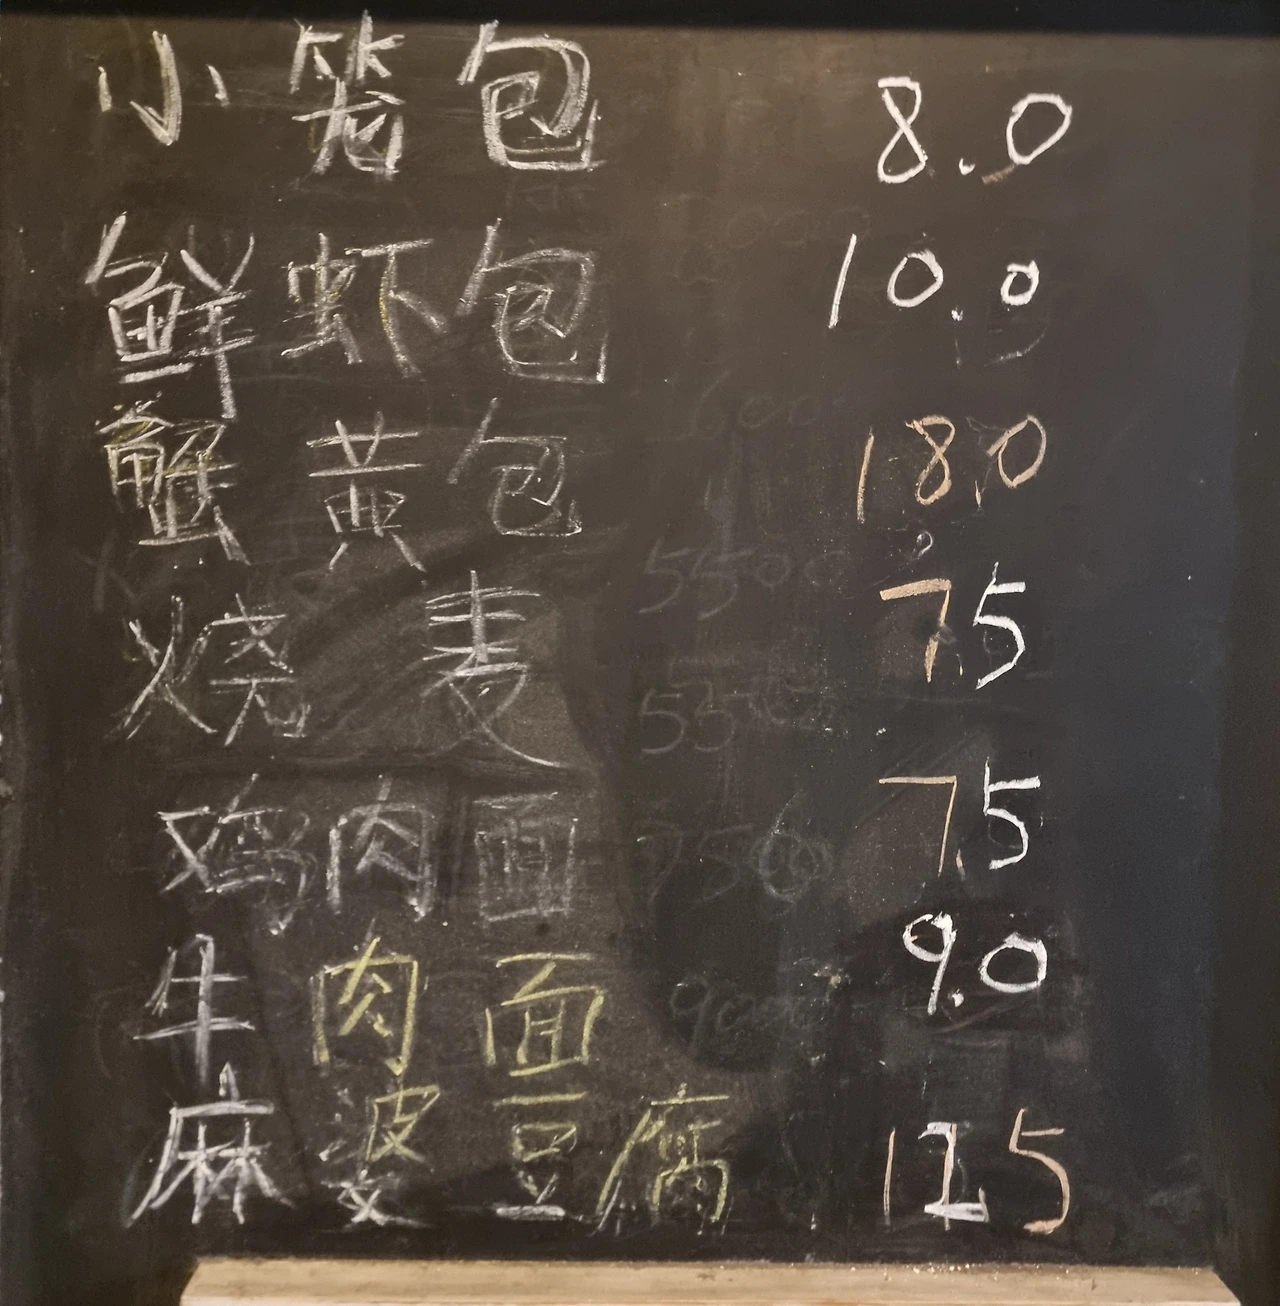 小笼包 8.0
鲜虾包 10.0
蟹黄包 18.0
烧麦 7.5
鸡肉面 7.5
牛肉面 9.0
麻婆豆腐 12.5